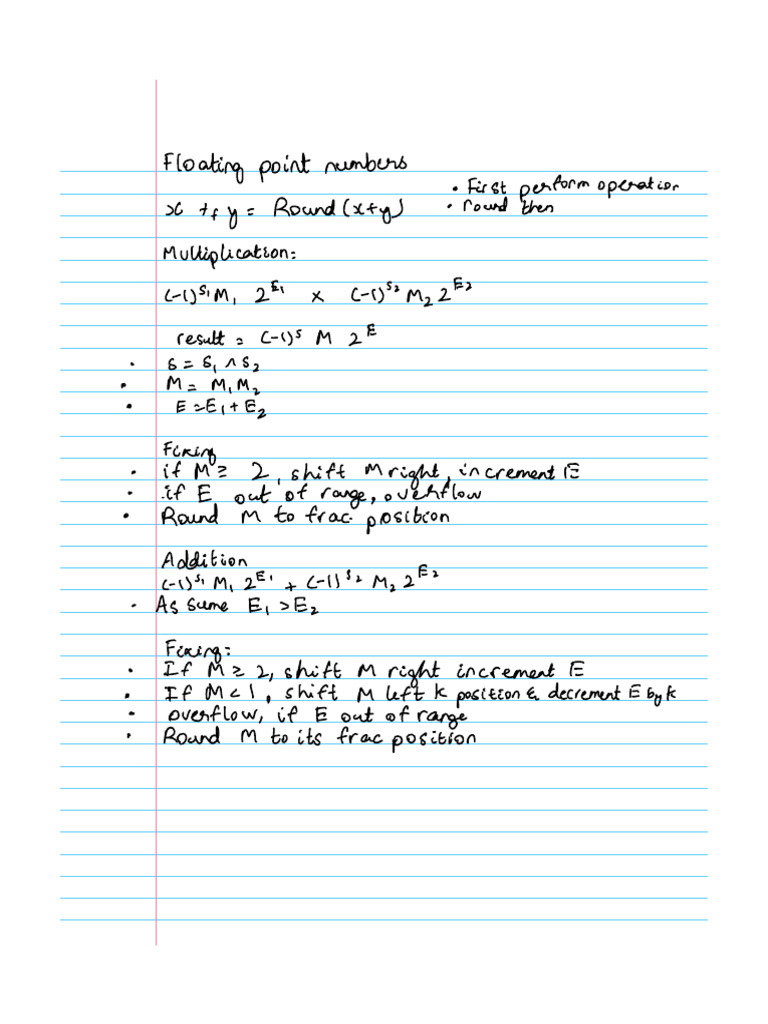 Floating point numbers
• First perform operation
x +f y = Round(x+y)
• round then
Multiplication:
(-1)^S₁ M₁ 2^E₁ x (-1)^S₂ M₂ 2^E₂
result = (-1)^S M 2^E
• S = S₁ ^ S₂
• M = M₁M₂
• E = E₁ + E₂
Fixing
• if M ≥ 2, shift M right, increment E
• if E out of range, overflow
• Round M to frac position
Addition
(-1)^S₁ M₁ 2^E₁ + (-1)^S₂ M₂ 2^E₂
• Assume E₁ > E₂
Fixing:
• If M ≥ 2, shift M right increment E
• If M < 1, shift M left k position & decrement E by k
• overflow, if E out of range
• Round M to its frac position